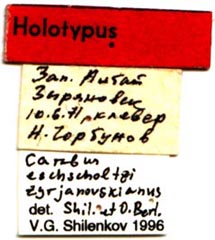 Holotypus
Зап. Алтай
Зыряновск
10.6.71, клевер
Н. Горбунов
Carabus
eschscholtzi
zyrjanovskianus
det. Shil. et O. Berl.
V.G. Shilenkov 1996